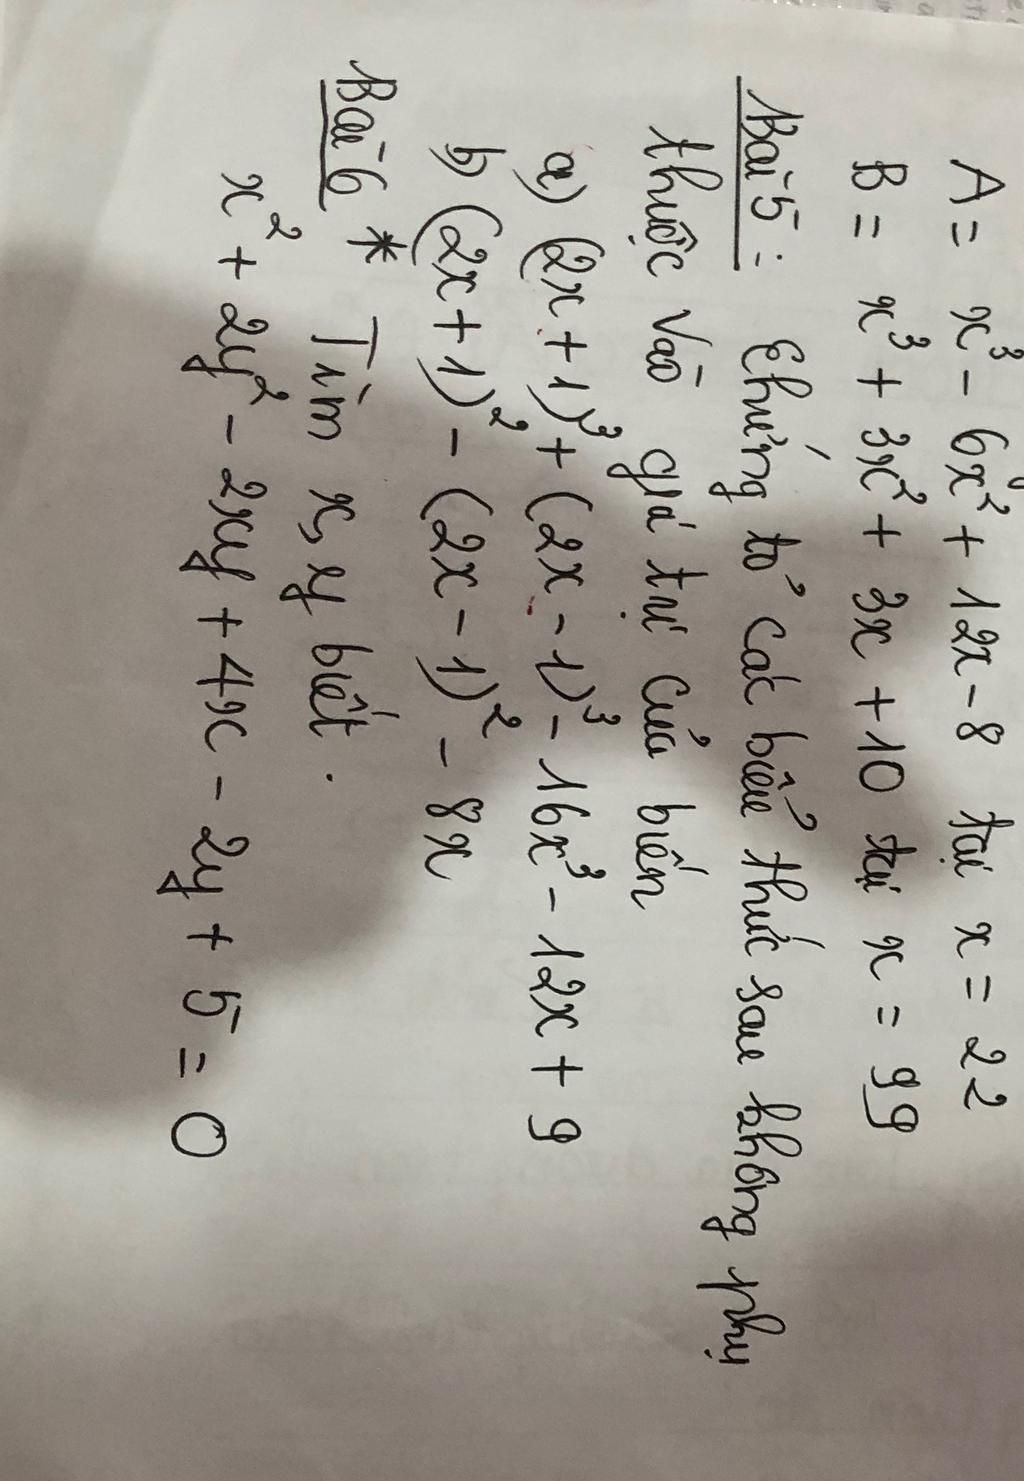 A = x³ - 6x² + 12x - 8 tại x = 22
B = x³ + 3x² + 3x + 10 tại x = 99
Bài 5 : Chứng tỏ các biểu thức sau không phụ
thuộc vào giá trị của biến
a) (2x + 1)³ + (2x - 1)³ - 16x³ - 12x + 9
b) (2x + 1)² - (2x - 1)² - 8x
Bài 6 * Tìm x, y biết .
x² + 2y² - 2xy + 4x - 2y + 5 = 0